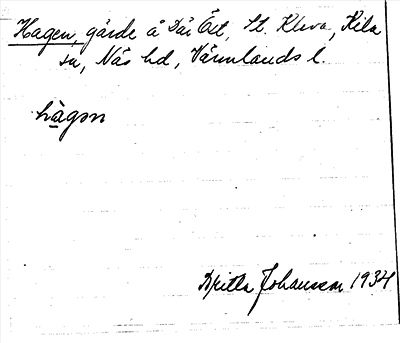 Hagen, gärde å Där Öst, St. Kleva, Kila
sn, Näs hd, Värmlands l.
hàgən
Britta Johansson 1934